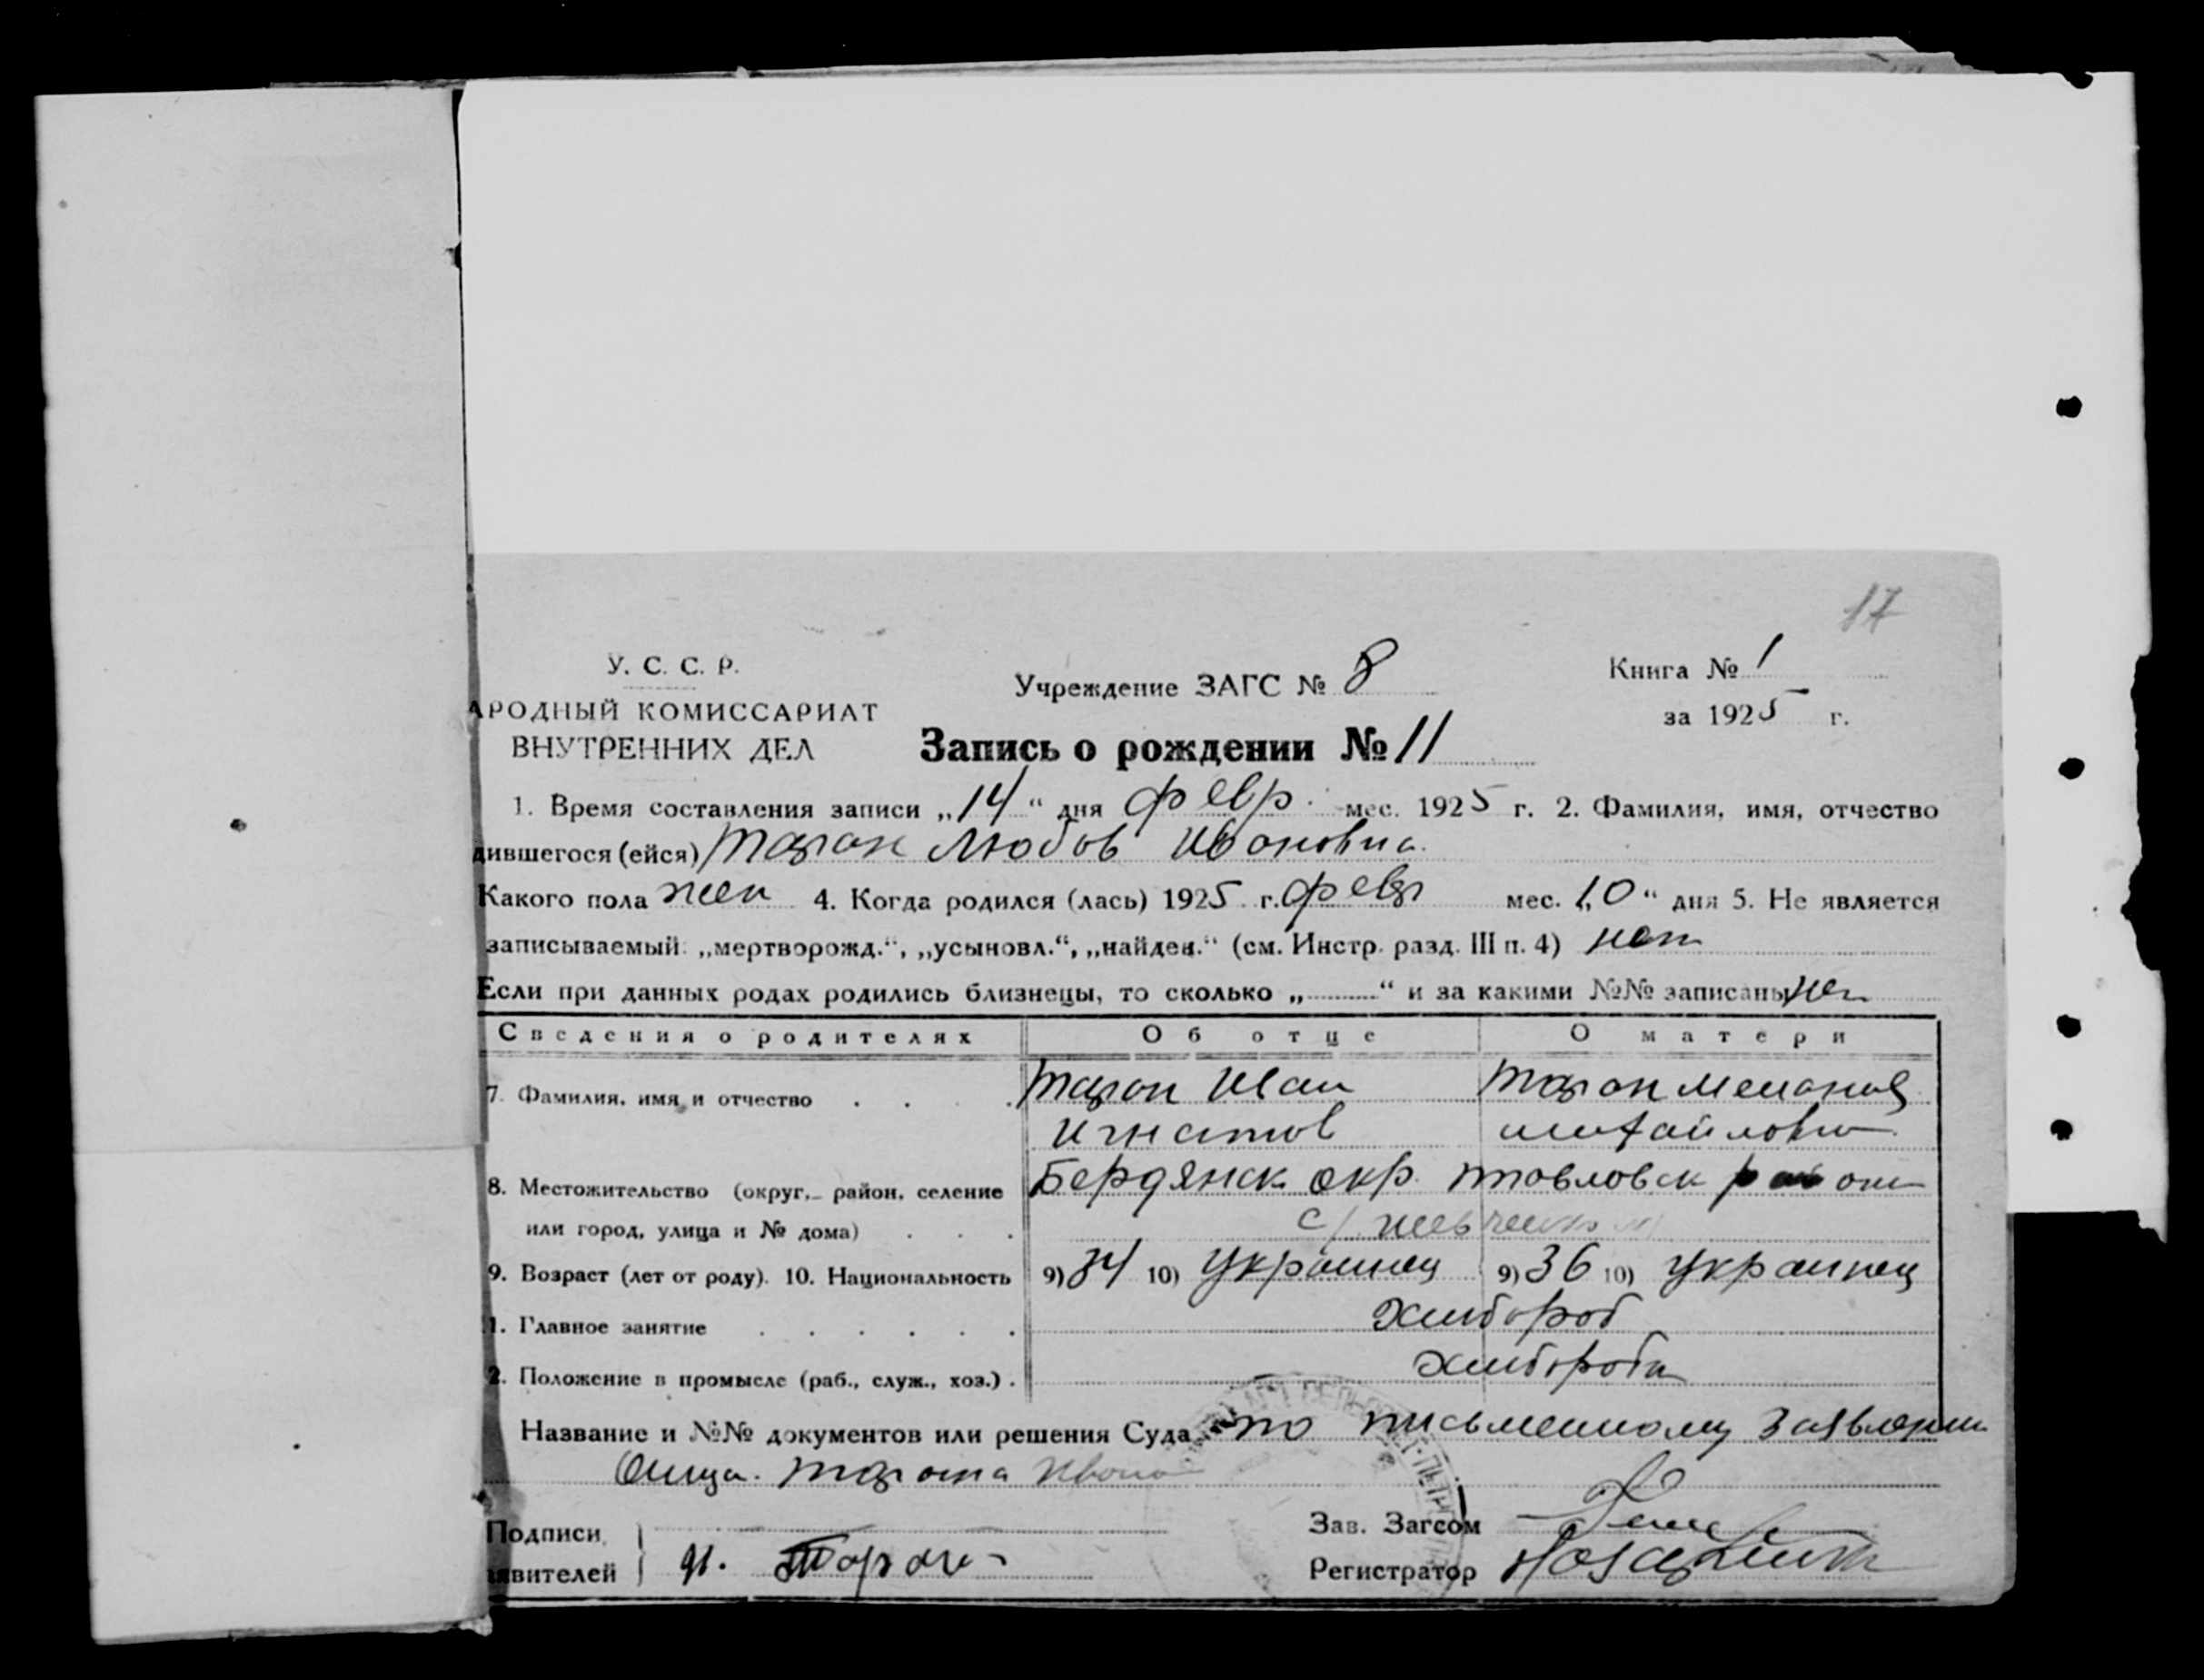 17
У. С. С. Р.
Учреждение ЗАГС № 8
Книга № 1
АРОДНЫЙ КОМИССАРИАТ
за 1925 г.
ВНУТРЕННИХ ДЕЛ
Запись о рождении № 11
1. Время составления записи „14“ дня февр. мес. 1925 г. 2. Фамилия, имя, отчество
дившегося (ейся) Таран Любов Ивановна.
Какого пола жен 4. Когда родился (лась) 1925 г. февр мес. „10“ дня 5. Не является
записываемый: „мертворожд.“, „усыновл.“, „найден.“ (см. Инстр. разд. III п. 4) нет
Если при данных родах родились близнецы, то сколько „ “ и за какими №№ записаны нет
Сведения о родителях Об отце О матери
7. Фамилия, имя и отчество Таран Иван Таран Мелания
Игнатов Михайловн
8. Местожительство (округ, район, селение Бердянск окр. район
или город, улица и № дома) с/
9. Возраст (лет от роду). 10. Национальность 9) 34 10) Украинец 9) 36 10) Украинец
1. Главное занятие Хлибороб
2. Положение в промысле (раб., служ., хоз.) Хлибороби
Название и №№ документов или решения Суда по письменному заявлению
Отца. Тарана Ивана
Подписи
явителей И. Таран
Зав. Загсом
Регистратор